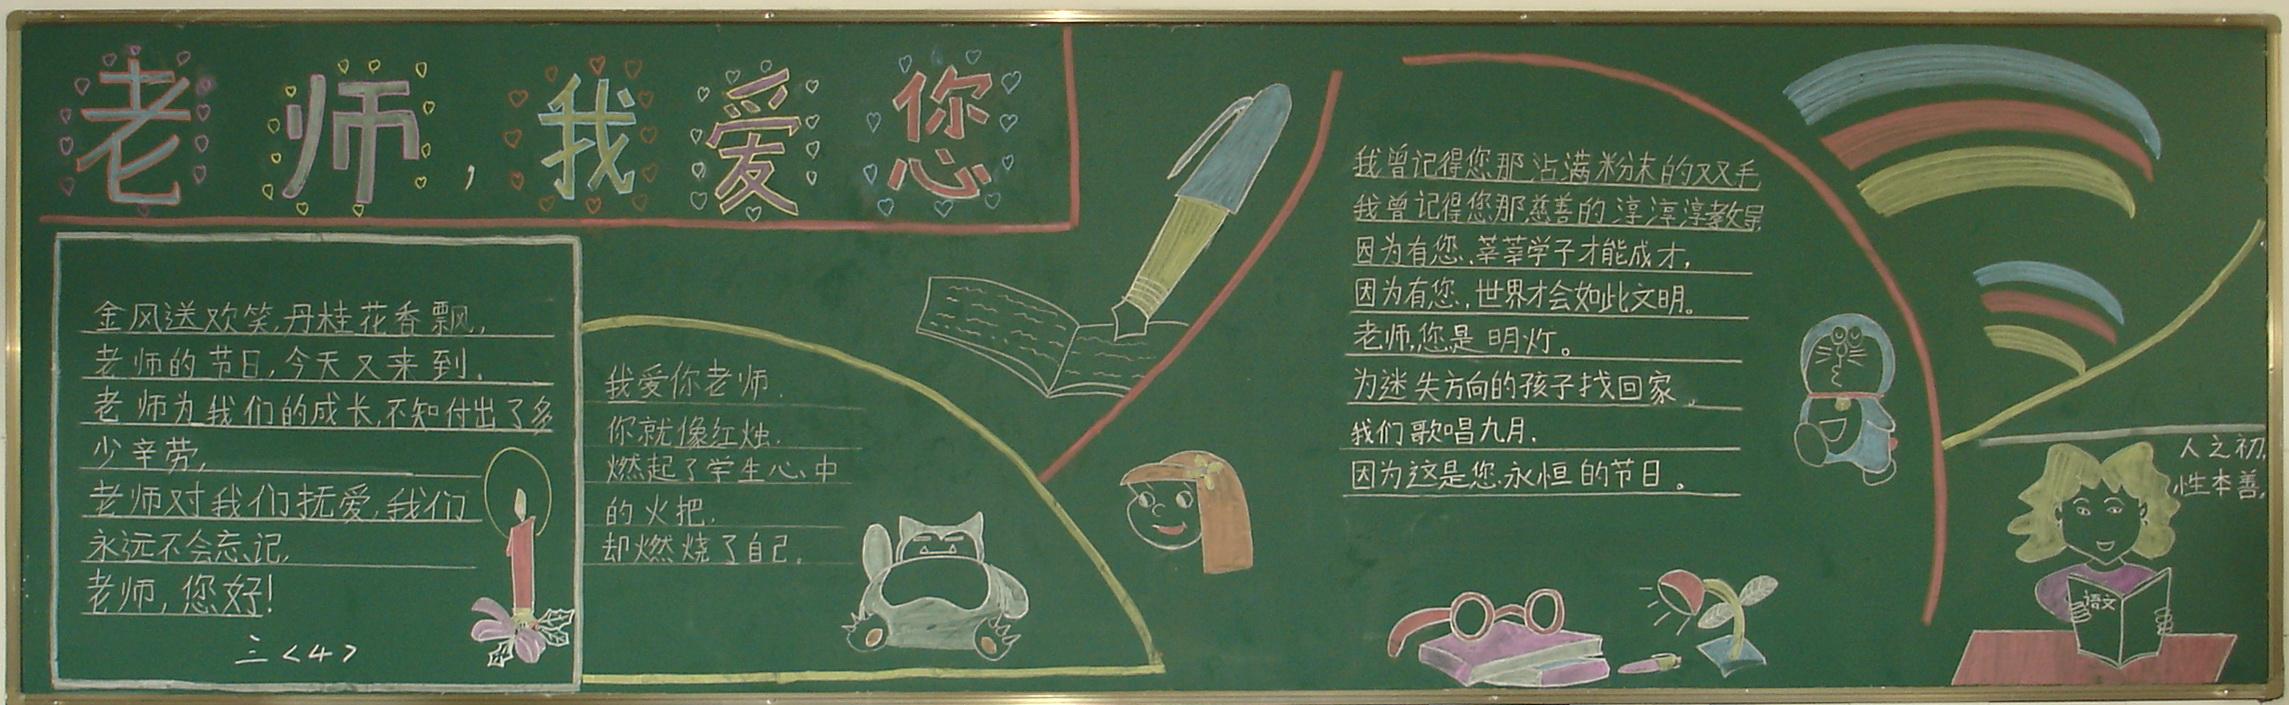 老师，我爱您
金风送欢笑，丹桂花香飘，
老师的节日，今天又来到。
老师为我们的成长，不知付出了多
少辛劳，
老师对我们抚爱，我们
永远不会忘记，
老师，您好！
三〈4〉
我爱你老师，
你就像红烛，
燃起了学生心中
的火把，
却燃烧了自己。
我曾记得您那沾满粉末的双手
我曾记得您那慈善的淳淳淳教导
因为有您，莘莘学子才能成才，
因为有您，世界才会如此文明。
老师，您是明灯。
为迷失方向的孩子找回家。
我们歌唱九月，
因为这是您永恒的节日。
人之初，
性本善，
语文